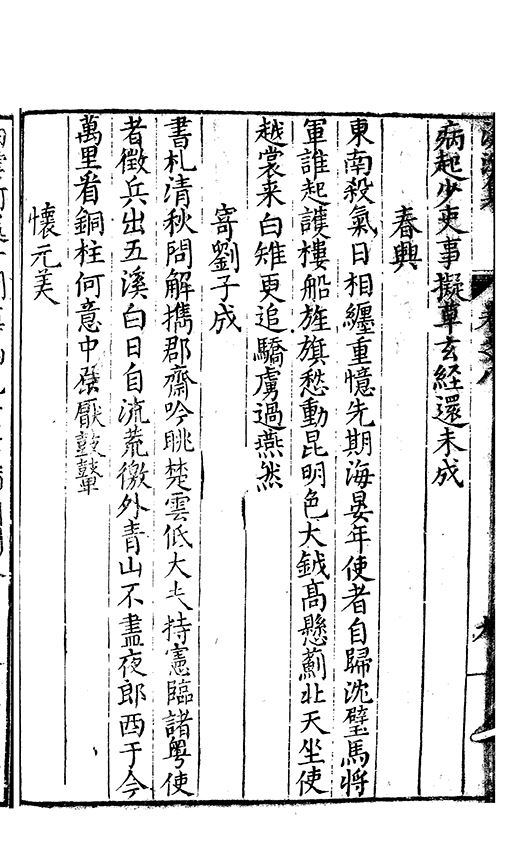 病起少吏事擬草玄経還未成
春興
東南殺氣日相纏重憶先期海晏年使者自歸沈璧馬將
軍誰起護樓船旌旗愁動昆明色大鉞高懸薊北天坐使
越裳来白雉更追驕虜過燕然
寄劉子成
書札清秋問解攜郡齋吟眺楚雲低大夫持憲臨諸粵使
者徵兵出五溪白日自流荒徼外青山不盡夜郎西于今
萬里看銅柱何意中原厭鼓鼙
懷元美